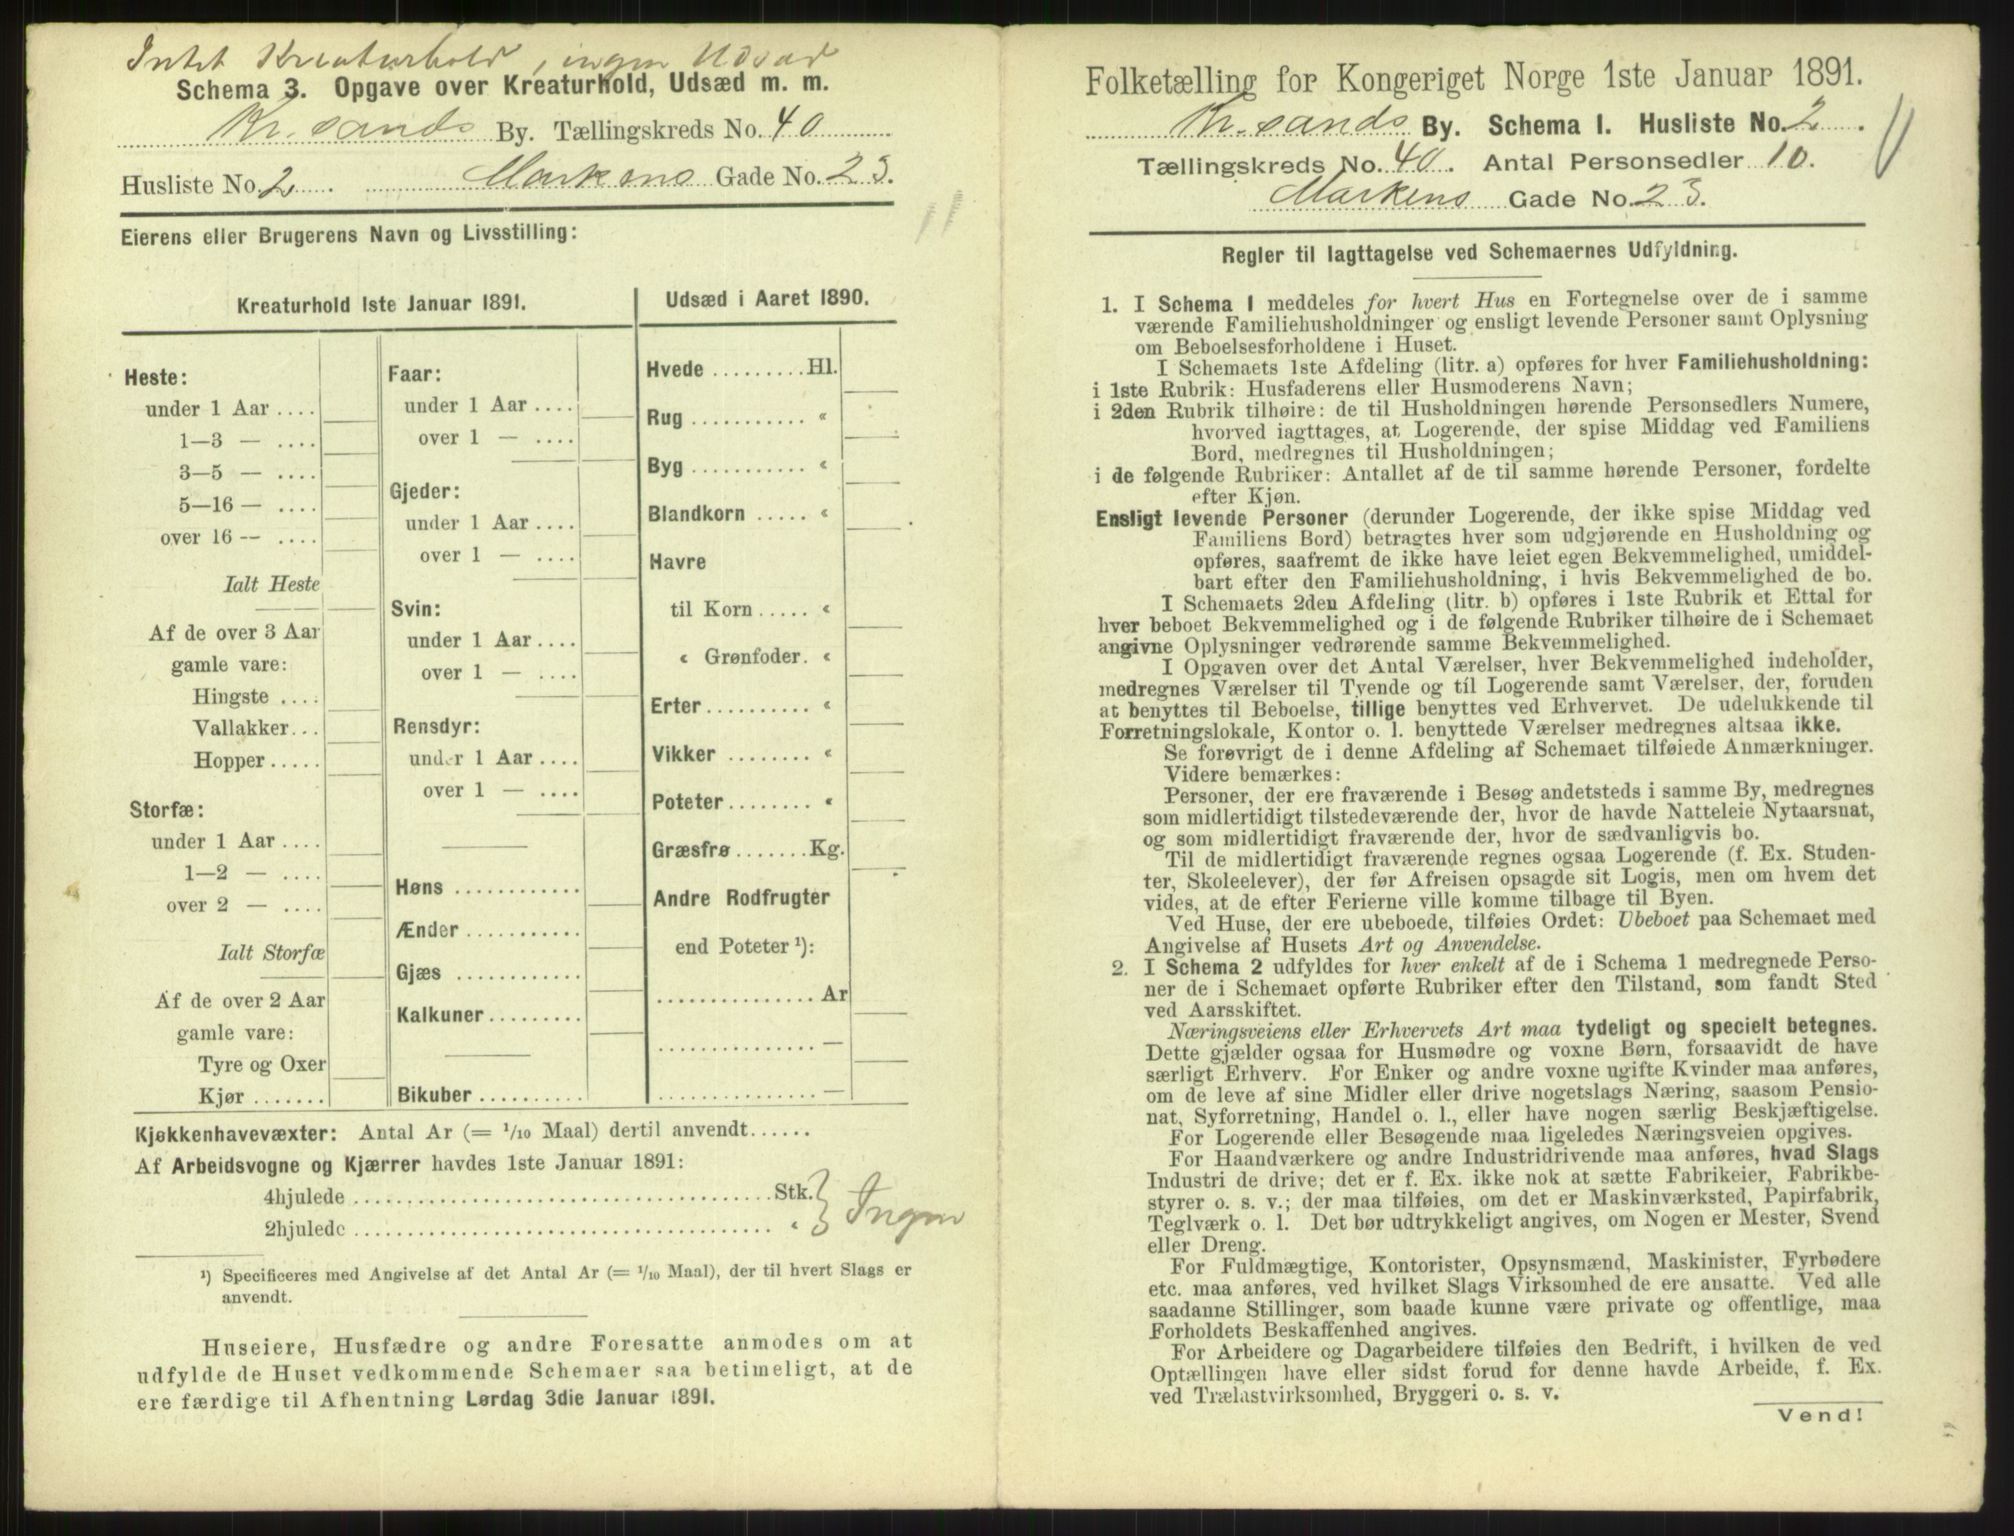 Intet Kreaturhold, ingen Udsæd
Schema 3. Opgave over Kreaturhold, Udsæd m. m.
Kr.sands By. Tællingskreds No. 40
Husliste No. 2 Markens Gade No. 23.
11
Eierens eller Brugerens Navn og Livsstilling:
Kreaturhold 1ste Januar 1891.
Heste:
under 1 Aar ....
1—3 — ....
3—5 — ....
5—16 — ....
over 16 — ....
Ialt Heste
Af de over 3 Aar
gamle vare:
Hingste ....
Vallakker...
Hopper.....
Storfæ:
under 1 Aar ....
1—2 — ....
over 2 — ....
Ialt Storfæ
Af de over 2 Aar
gamle vare:
Tyre og Oxer
Kjør .......
Faar:
under 1 Aar ....
over 1 — ....
Gjeder:
under 1 Aar ....
over 1 — ....
Svin:
under 1 Aar ....
over 1 — ....
Rensdyr:
under 1 Aar ....
over 1 — ....
Høns ............
Ænder ...........
Gjæs ............
Kalkuner.........
Bikuber ..........
Udsæd i Aaret 1890.
Hvede .........Hl.
Rug ........... «
Byg ........... «
Blandkorn ..... «
Havre
til Korn ..... «
« Grønfoder. «
Erter.......... «
Vikker ........ «
Poteter........ «
Græsfrø .......Kg.
Andre Rodfrugter
end Poteter ¹):
............... Ar
............... —
............... —
Kjøkkenhavevæxter: Antal Ar (= 1/10 Maal) dertil anvendt......
Af Arbeidsvogne og Kjærrer havdes 1ste Januar 1891:
4hjulede ........................................Stk. } Ingen
2hjulede ........................................ «
¹) Specificeres med Angivelse af det Antal Ar (= 1/10 Maal), der til hvert Slags er
anvendt.
Huseiere, Husfædre og andre Foresatte anmodes om at
udfylde de Huset vedkommende Schemaer saa betimeligt, at de
ere færdige til Afhentning Lørdag 3die Januar 1891.
Folketælling for Kongeriget Norge 1ste Januar 1891.
Kr.sands By. Schema I. Husliste No. 2.
Tællingskreds No. 40. Antal Personsedler 10.
Markens Gade No. 23.
Regler til Iagttagelse ved Schemaernes Udfyldning.
1. I Schema 1 meddeles for hvert Hus en Fortegnelse over de i samme
værende Familiehusholdninger og ensligt levende Personer samt Oplysning
om Beboelsesforholdene i Huset.
I Schemaets 1ste Afdeling (litr. a) opføres for hver Familiehusholdning:
i 1ste Rubrik: Husfaderens eller Husmoderens Navn;
i 2den Rubrik tilhøire: de til Husholdningen hørende Personsedlers Numere,
hvorved iagttages, at Logerende, der spise Middag ved Familiens
Bord, medregnes til Husholdningen;
i de følgende Rubriker: Antallet af de til samme hørende Personer, fordelte
efter Kjøn.
Ensligt levende Personer (derunder Logerende, der ikke spise Middag ved
Familiens Bord) betragtes hver som udgjørende en Husholdning og
opføres, saafremt de ikke have leiet egen Bekvemmelighed, umiddel-
bart efter den Familiehusholdning, i hvis Bekvemmelighed de bo.
I Schemaets 2den Afdeling (litr. b) opføres i 1ste Rubrik et Ettal for
hver beboet Bekvemmelighed og i de følgende Rubriker tilhøire de i Schemaet
angivne Oplysninger vedrørende samme Bekvemmelighed.
I Opgaven over det Antal Værelser, hver Bekvemmelighed indeholder,
medregnes Værelser til Tyende og til Logerende samt Værelser, der, foruden
at benyttes til Beboelse, tillige benyttes ved Erhvervet. De udelukkende til
Forretningslokale, Kontor o. l. benyttede Værelser medregnes altsaa ikke.
Se forøvrigt de i denne Afdeling af Schemaet tilføiede Anmærkninger.
Videre bemærkes:
Personer, der ere fraværende i Besøg andetsteds i samme By, medregnes
som midlertidigt tilstedeværende der, hvor de havde Natteleie Nytaarsnat,
og som midlertidigt fraværende der, hvor de sædvanligvis bo.
Til de midlertidigt fraværende regnes ogsaa Logerende (f. Ex. Studen-
ter, Skoleelever), der før Afreisen opsagde sit Logis, men om hvem det
vides, at de efter Ferierne ville komme tilbage til Byen.
Ved Huse, der ere ubeboede, tilføies Ordet: Ubeboet paa Schemaet med
Angivelse af Husets Art og Anvendelse.
2. I Schema 2 udfyldes for hver enkelt af de i Schema 1 medregnede Perso-
ner de i Schemaet opførte Rubriker efter den Tilstand, som fandt Sted
ved Aarsskiftet.
Næringsveiens eller Erhvervets Art maa tydeligt og specielt betegnes.
Dette gjælder ogsaa for Husmødre og voxne Børn, forsaavidt de have
særligt Erhverv. For Enker og andre voxne ugifte Kvinder maa anføres,
om de leve af sine Midler eller drive nogetslags Næring, saasom Pensio-
nat, Syforretning, Handel o. l., eller have nogen særlig Beskjæftigelse.
For Logerende eller Besøgende maa ligeledes Næringsveien opgives.
For Haandværkere og andre Industridrivende maa anføres, hvad Slags
Industri de drive; det er f. Ex. ikke nok at sætte Fabrikeier, Fabrikbe-
styrer o. s. v.; der maa tilføies, om det er Maskinværksted, Papirfabrik,
Teglværk o. l. Det bør udtrykkeligt angives, om Nogen er Mester, Svend
eller Dreng.
For Fuldmægtige, Kontorister, Opsynsmænd, Maskinister, Fyrbødere
etc. maa anføres, ved hvilket Slags Virksomhed de ere ansatte. Ved alle
saadanne Stillinger, som baade kunne være private og offentlige, maa
Forholdets Beskaffenhed angives.
For Arbeidere og Dagarbeidere tilføies den Bedrift, i hvilken de ved
Optællingen have eller sidst forud for denne havde Arbeide, f. Ex.
ved Trælastvirksomhed, Bryggeri o. s. v.
Vend!